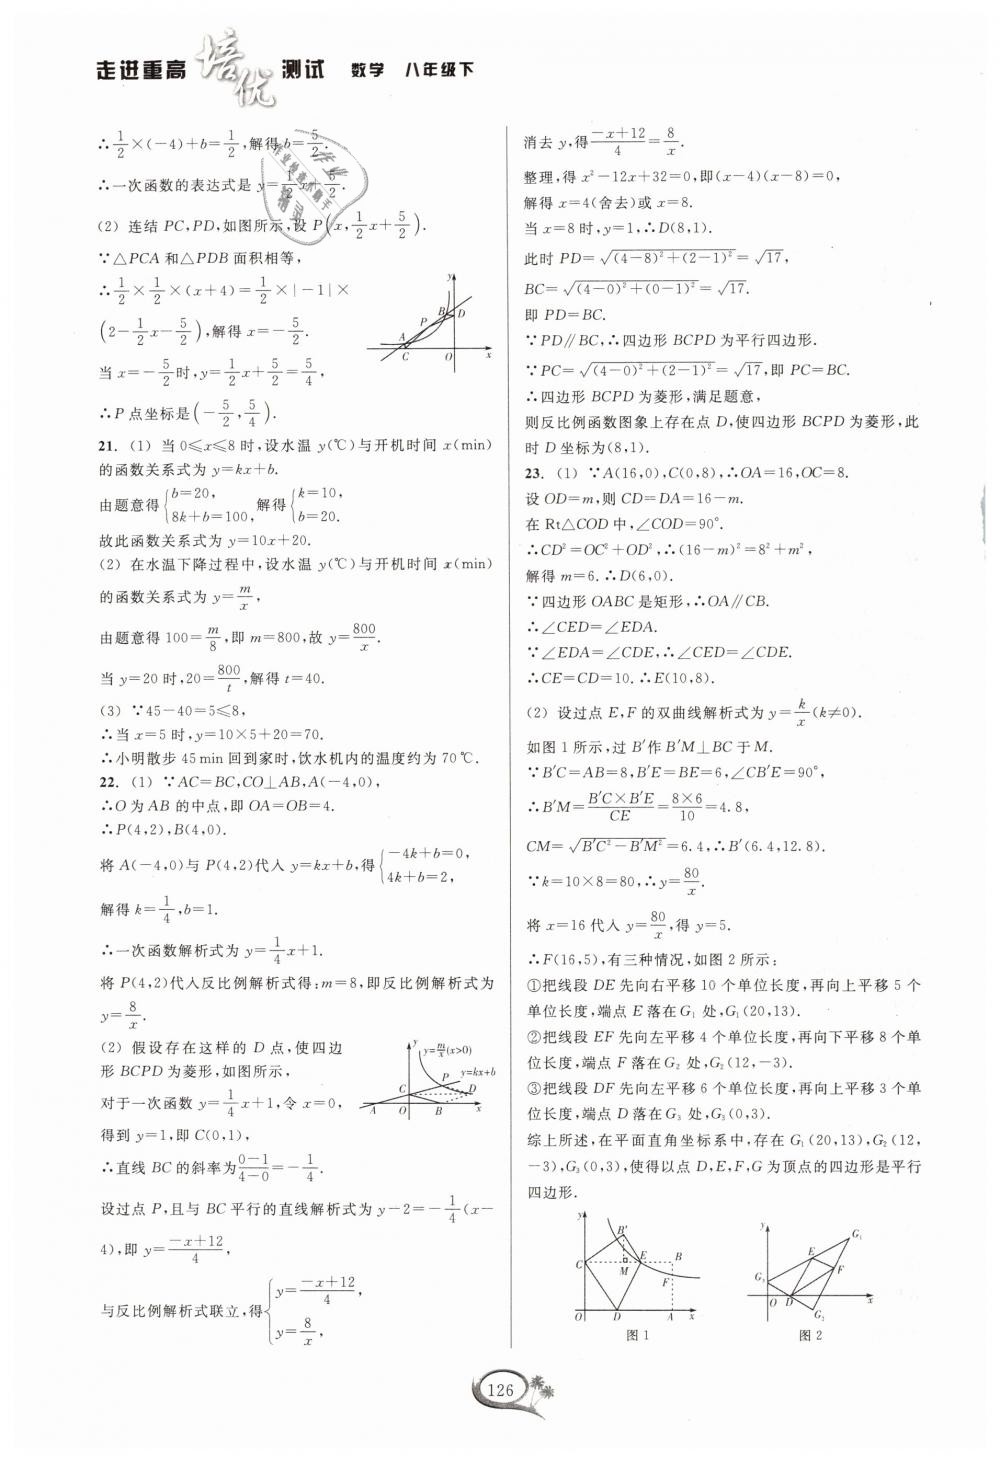 走进重高 培优 测试 数学 八年级下
∴1/2×(-4)+b=1/2,解得b=5/2.
∴一次函数的表达式是 y=1/2x+5/2.
(2) 连结 PC,PD,如图所示,设 P(x,1/2x+5/2).
∵△PCA 和△PDB 面积相等,
∴1/2×1/2×(x+4)=1/2×|-1|×
(2-1/2x-5/2),解得 x=-5/2.
当 x=-5/2时,y=1/2x+5/2=5/4,
∴P 点坐标是(-5/2,5/4).
y
B
D
P
A
C
O
x
21. (1) 当 0≤x≤8 时,设水温 y(℃)与开机时间 x(min)
的函数关系式为 y=kx+b.
由题意得{b=20, 8k+b=100, 解得{k=10, b=20.
故此函数关系式为 y=10x+20.
(2) 在水温下降过程中,设水温 y(℃)与开机时间 x(min)
的函数关系式为 y=m/x,
由题意得 100=m/8,即 m=800,故 y=800/x.
当 y=20 时,20=800/t,解得 t=40.
(3) ∵45-40=5≤8,
∴当 x=5 时,y=10×5+20=70.
∴小明散步 45 min 回到家时,饮水机内的温度约为 70 ℃.
22. (1) ∵AC=BC,CO⊥AB,A(-4,0),
∴O 为 AB 的中点,即 OA=OB=4.
∴P(4,2),B(4,0).
将 A(-4,0)与 P(4,2)代入 y=kx+b,得{-4k+b=0, 4k+b=2,
解得 k=1/4,b=1.
∴一次函数解析式为 y=1/4x+1.
将 P(4,2)代入反比例解析式得:m=8,即反比例解析式为
y=8/x.
(2) 假设存在这样的 D 点,使四边
形 BCPD 为菱形,如图所示,
对于一次函数 y=1/4x+1,令 x=0,
得到 y=1,即 C(0,1),
y
y=m/x(x>0)
y=kx+b
P
C
D
A
O
B
x
∴直线 BC 的斜率为0-1/4-0=-1/4.
设过点 P,且与 BC 平行的直线解析式为 y-2=-1/4(x-
4),即 y=-x+12/4,
与反比例解析式联立,得{y=-x+12/4, y=8/x,
消去 y,得-x+12/4=8/x.
整理,得 x²-12x+32=0,即(x-4)(x-8)=0,
解得 x=4(舍去)或 x=8.
当 x=8 时,y=1,∴D(8,1).
此时 PD=√(4-8)²+(2-1)²=√17,
BC=√(4-0)²+(0-1)²=√17.
即 PD=BC.
∵PD∥BC,∴四边形 BCPD 为平行四边形.
∵PC=√(4-0)²+(2-1)²=√17,即 PC=BC.
∴四边形 BCPD 为菱形,满足题意,
则反比例函数图象上存在点 D,使四边形 BCPD 为菱形,此
时 D 坐标为(8,1).
23. (1) ∵A(16,0),C(0,8),∴OA=16,OC=8.
设 OD=m,则 CD=DA=16-m.
在 Rt△COD 中,∠COD=90°.
∴CD²=OC²+OD²,∴(16-m)²=8²+m²,
解得 m=6.∴D(6,0).
∵四边形 OABC 是矩形,∴OA∥CB.
∴∠CED=∠EDA.
∵∠EDA=∠CDE,∴∠CED=∠CDE.
∴CE=CD=10.∴E(10,8).
(2) 设过点 E,F 的双曲线解析式为 y=k/x(k≠0).
如图 1 所示,过 B′作 B′M⊥BC 于 M.
∵B′C=AB=8,B′E=BE=6,∠CB′E=90°,
∴B′M=B′C×B′E/CE=8×6/10=4.8,
CM=√B′C²-B′M²=6.4,∴B′(6.4,12.8).
∵k=10×8=80,∴y=80/x.
将 x=16 代入 y=80/x,得 y=5.
∴F(16,5),有三种情况,如图 2 所示:
①把线段 DE 先向右平移 10 个单位长度,再向上平移 5 个
单位长度,端点 E 落在 G₁ 处,G₁(20,13).
②把线段 EF 先向左平移 4 个单位长度,再向下平移 8 个单
位长度,端点 F 落在 G₂ 处,G₂(12,-3).
③把线段 DF 先向左平移 6 个单位长度,再向上平移 3 个单
位长度,端点 D 落在 G₃ 处,G₃(0,3).
综上所述,在平面直角坐标系中,存在 G₁(20,13),G₂(12,
-3),G₃(0,3),使得以点 D,E,F,G 为顶点的四边形是平行
四边形.
y
B′
C
M
E
B
F
O
D
A
x
图 1
y
G₁
E
F
G₃
O
D
G₂
x
图 2
126